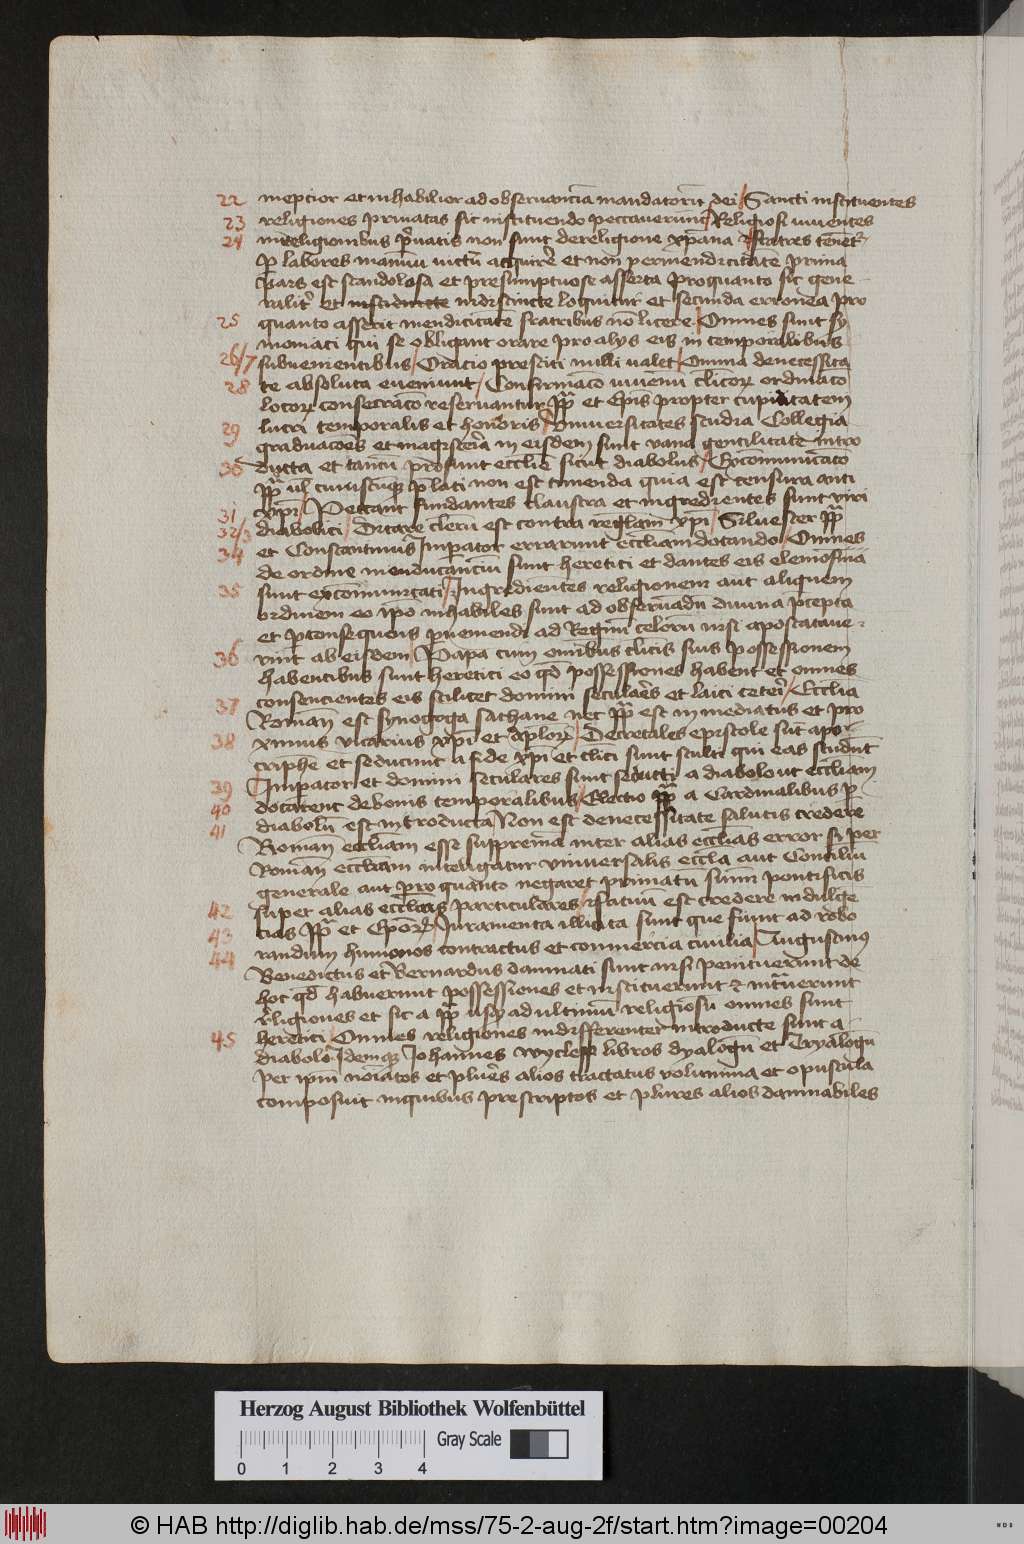 22 ineptior et inhabilior ad observanciā mandatorū dei / Sancti instituentes
23 religiones privatas sic instituendo peccaverunt / Religiosi viventes
24 in religionibus p̄vatis non sunt de religione xp̄iana / Fratres tenēt͛
p labores manuū victū acquirē et non per mendicitate prima
pars est scandolosa et presumptuose asserta pro quanto sic gene
ralit͛ et indistincte loquitur et secunda erronea pro
25 quanto asserit mendicitatē fratribus nō licere / Omnes sunt sy
moniaci qui se obligant orare pro alys eis in temporalibus
26/7 subvenientibus / Oracio presciti nulli valet / Omnia de necessita
28 te absoluta eveniunt / Confirmacō iuvenū cl̄icoꝝ ordinacō
locoꝝ consecracō reservantur pp̄ et Ep̄is propter cupiditatem
29 lucri temporalis et honoris / Universitates studia Collegia
graduacōes et magisteria in eisdem sunt vana gentilitate intro
30 ducta et tantū prosunt eccl̄ie sicut diabolus / Excōmunicacō
pp̄ ul cuiuscūqꝫ p̄lati non est timenda quia est censura anti
31 xp̄i / Peccant fundantes claustra et ingredientes sunt viri
32/3 diabolici / Ditare clerū est contra reglam xp̄i / Silvester pp̄
34 et Constantinus Imperator errarunt eccl̄iam dotando / Omnes
de ordine mendicanciū sunt heretici et dantes eis elemosinā
35 sunt excōmunicati / Ingredientes religionem aut aliquem
ordinem eo ip̄o inhabiles sunt ad observādū divina p̄cepta
et p consequens pveniendi ad Regnū celorū nisi apostatave
36 rint ab eisdem / Papa cum omībus cl̄icis suis possessionem
habentibus sunt heretici eo qd̄ possessiones habent et omnes
consencientes eis scilicet domini seculares et laici ceteri / Eccl̄ia
37 Romaā est synogoga sathane nec pp̄ est inmediatus et pro
38 ximus vicarius xp̄i et ap̄loꝝ / Decretales epistole sūt apo
criphe et seducunt a fide xp̄i et cl̄ici sunt stulti qui eas studūt
39 Imperator et domini seculares sunt seducti a diabolo ut eccl̄iam
40 dotarent de bonis temporalibus / Electio pp̄ a Cardinalibus p
41 diabolū est introducta / Non est de necessitate salutis credere
Romaā eccl̄iam esse suppremā inter alias eccl̄ias error si per
Romaā eccl̄iam intelligatur universalis eccl̄ia aut Conciliū
generale aut pro quanto negaret primatū summi pontificis
42 super alias eccl̄ias particulares / Fatuū est credere indulgē
43 cias pp̄ et Ep̄oꝝ / Iuramenta illicita sunt que fiunt ad robo
44 randum humonos contractus et commercia civilia / Augustinus
Benedictus et Bernardus damnati sunt nisi penituerunt de
hoc qd̄ habuerunt possessiones et instituerunt et intraverunt
religiones et sic a pp̄ usqꝫ ad ultimū religiosū omnes sunt
45 heretici / Omnes religiones indifferenter introducte sunt a
diabolo / Idemqꝫ Johannes wycleff libros dyalogū et Tryalogū
per ip̄m noīatos et plures alios tractatus volumina et opuscula
composuit in quibus prescriptos et plures alios damnabiles
Herzog August Bibliothek Wolfenbüttel
Gray Scale
0 1 2 3 4
© HAB http://diglib.hab.de/mss/75-2-aug-2f/start.htm?image=00204